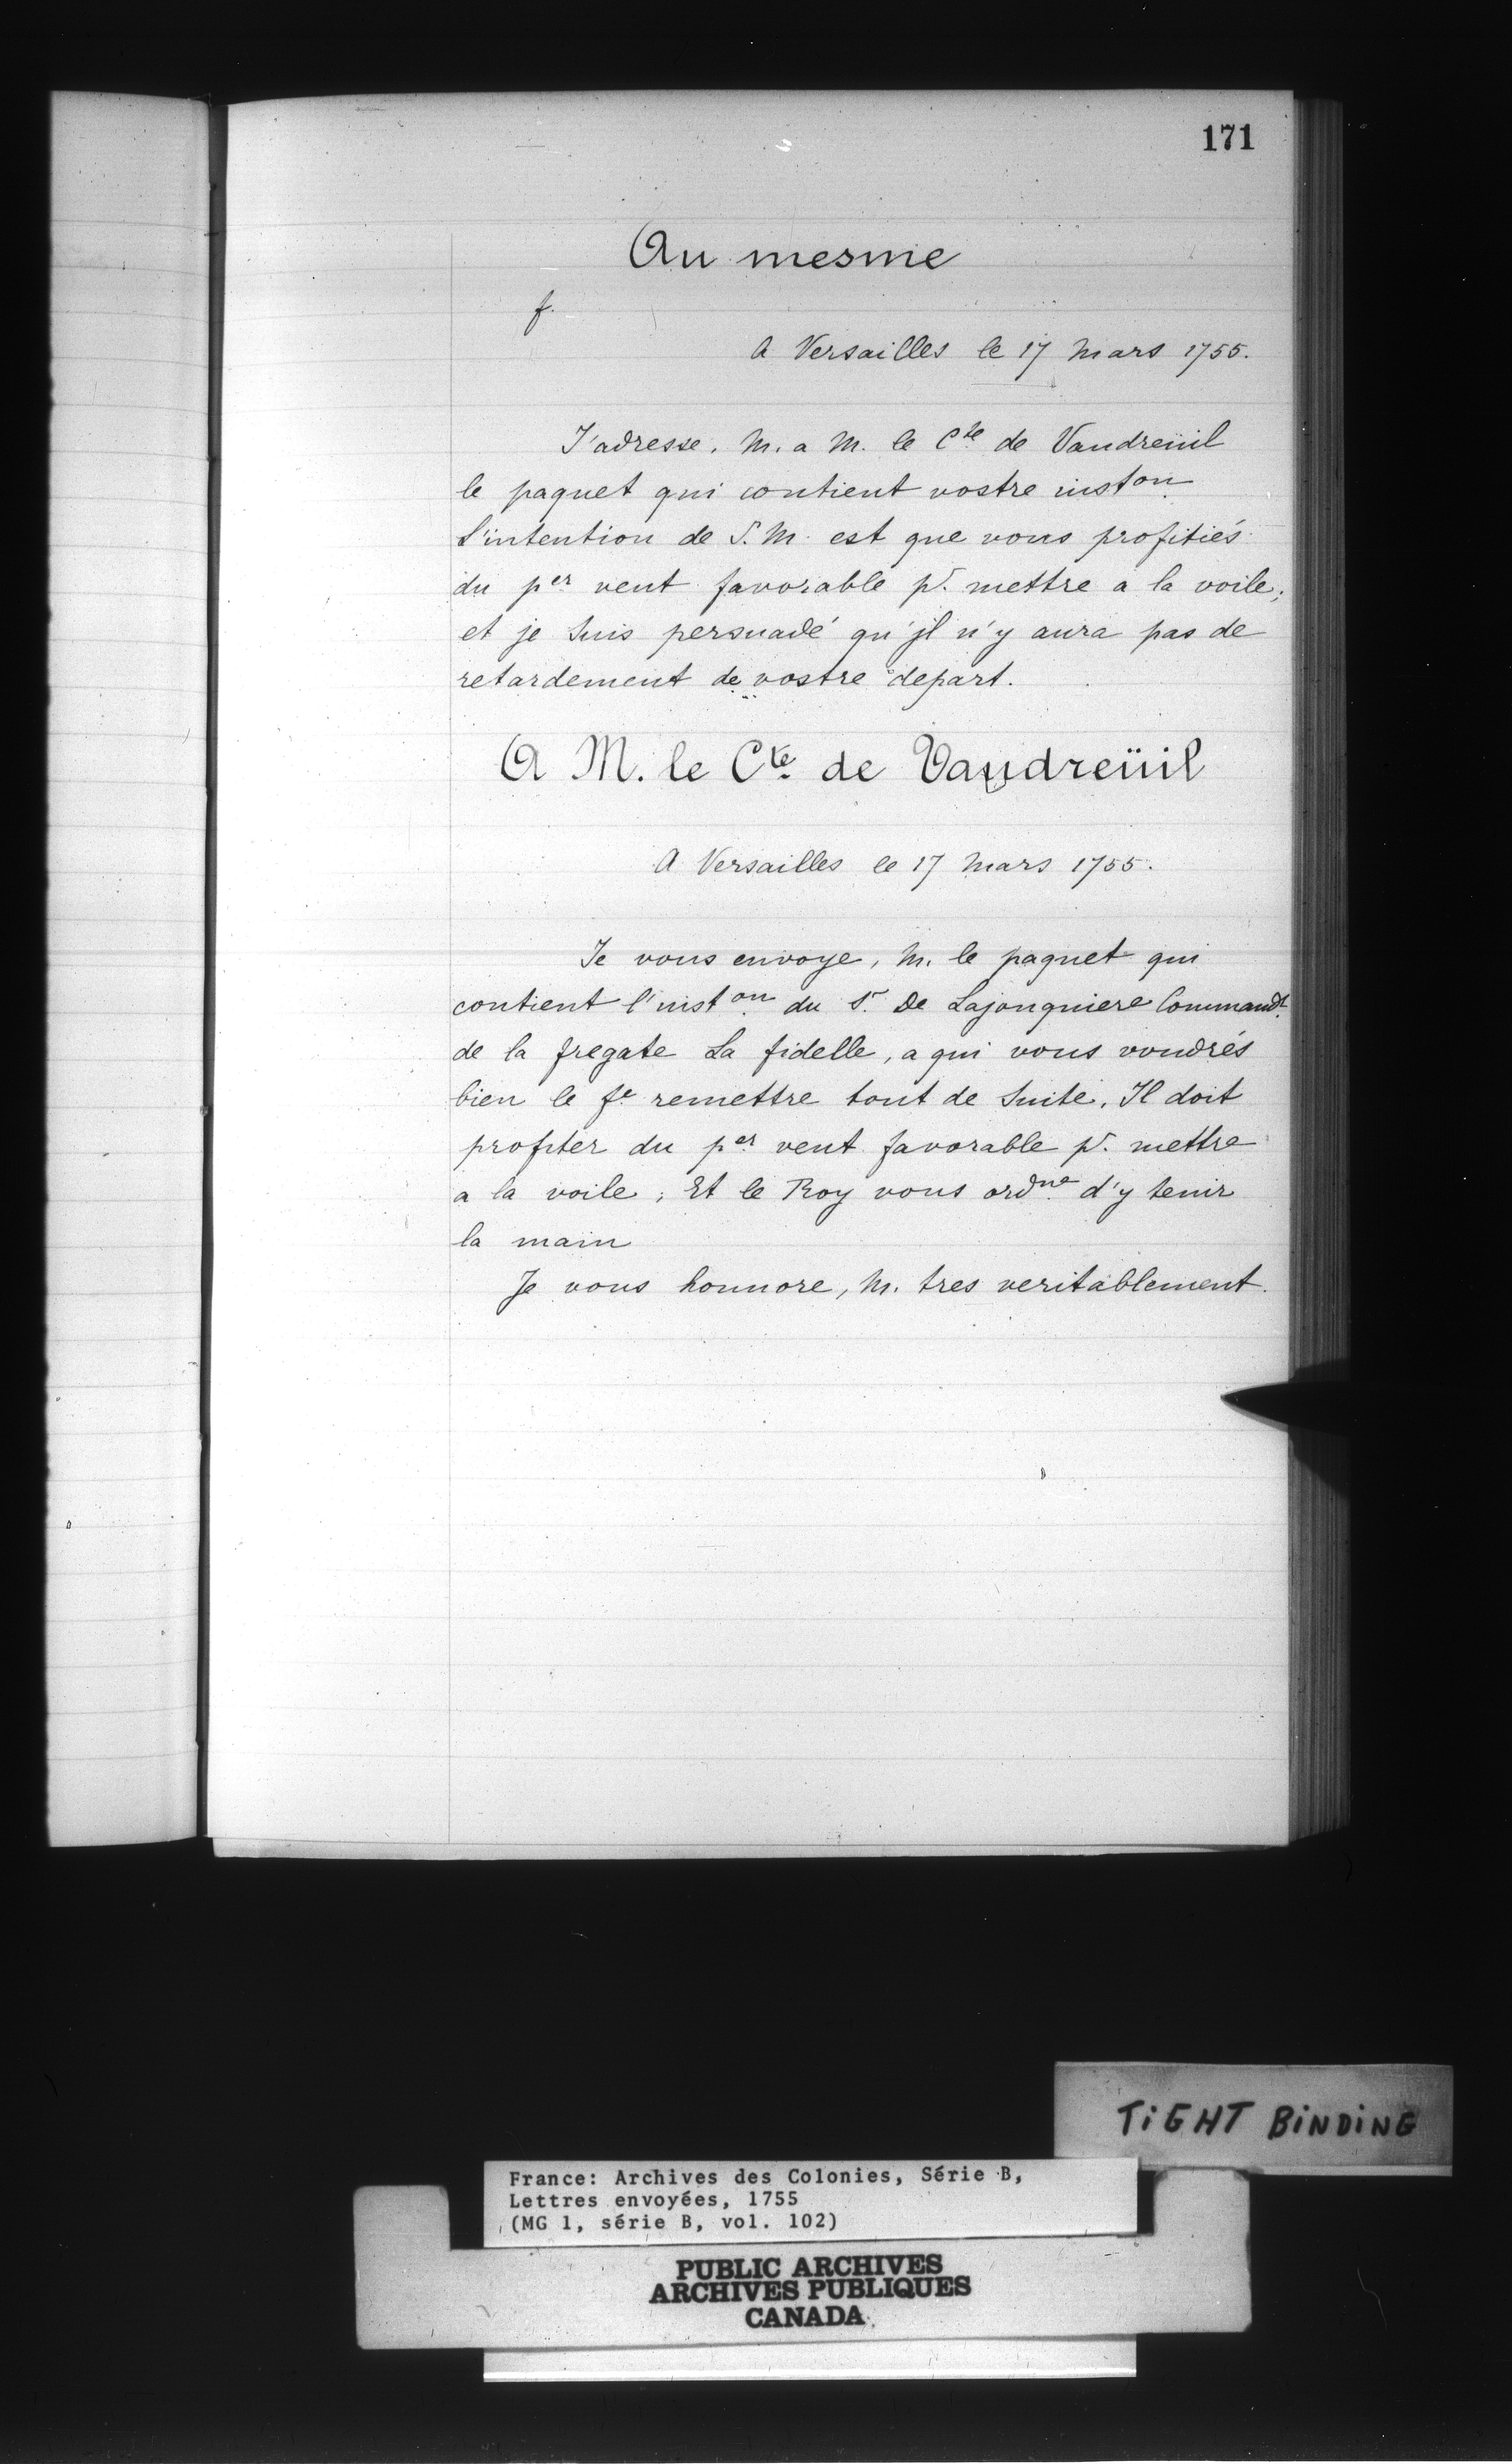 171
Au mesme
f.
A Versailles le 17 Mars 1755.
J'adresse, M. a M. le Cte de Vaudreüil
le paquet qui contient vostre inston
L'intention de S. M. est que vous profitiés
du per vent favorable pr. mettre a la voile;
et je suis persuadé qu'jl n'y aura pas de
retardement de vostre depart.
A M. le Cte de Vaudreüil
A Versailles le 17 Mars 1755.
Je vous envoye, M. le paquet qui
contient l'inston du Sr. De Lajonquiere Commandt.
de la fregate La fidelle, a qui vous voudrés
bien le fe remettre tout de suite. Il doit
profiter du per vent favorable pr. mettre
a la voile; Et le Roy vous ordne d'y tenir
la main
Je vous honnore, M. tres veritablement.
TIGHT BINDING
France: Archives des Colonies, Série B,
Lettres envoyées, 1755
(MG 1, série B, vol. 102)
PUBLIC ARCHIVES
ARCHIVES PUBLIQUES
CANADA